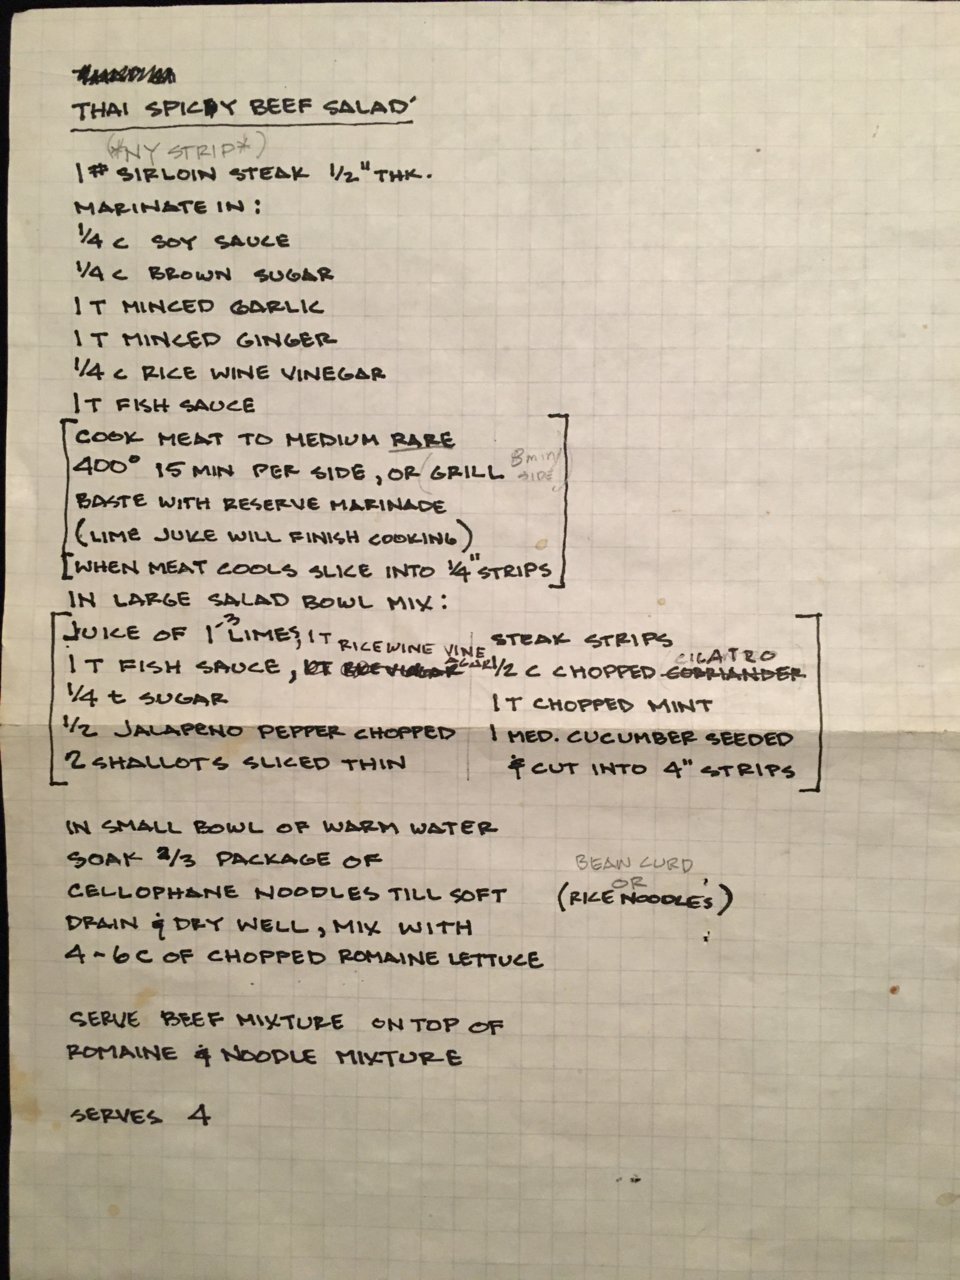 THAI SPICY BEEF SALAD
(*NY STRIP*)
1# SIRLOIN STEAK 1/2" THK.
MARINATE IN:
1/4 C SOY SAUCE
1/4 C BROWN SUGAR
1 T MINCED GARLIC
1 T MINCED GINGER
1/4 C RICE WINE VINEGAR
1T FISH SAUCE
[COOK MEAT TO MEDIUM RARE
400° 15 MIN PER SIDE, OR (GRILL 8 min/SIDE)
BASTE WITH RESERVE MARINADE
(LIME JUICE WILL FINISH COOKING)
[WHEN MEAT COOLS SLICE INTO 1/4" STRIPS]
IN LARGE SALAD BOWL MIX:
[JUICE OF 1-3 LIMES, 1T RICE WINE VINEGAR
1 T FISH SAUCE,
1/4 t SUGAR
1/2 JALAPENO PEPPER CHOPPED
2 SHALLOTS SLICED THIN
STEAK STRIPS
1/2 C CHOPPED CORRIANDER CILATRO
1T CHOPPED MINT
1 MED. CUCUMBER SEEDED
& CUT INTO 4" STRIPS]
IN SMALL BOWL OF WARM WATER
SOAK 2/3 PACKAGE OF
CELLOPHANE NOODLES TILL SOFT
BEAN CURD
OR
(RICE NOODLE'S)
DRAIN & DRY WELL, MIX WITH
4-6 C OF CHOPPED ROMAINE LETTUCE
SERVE BEEF MIXTURE ON TOP OF
ROMAINE & NOODLE MIXTURE
SERVES 4